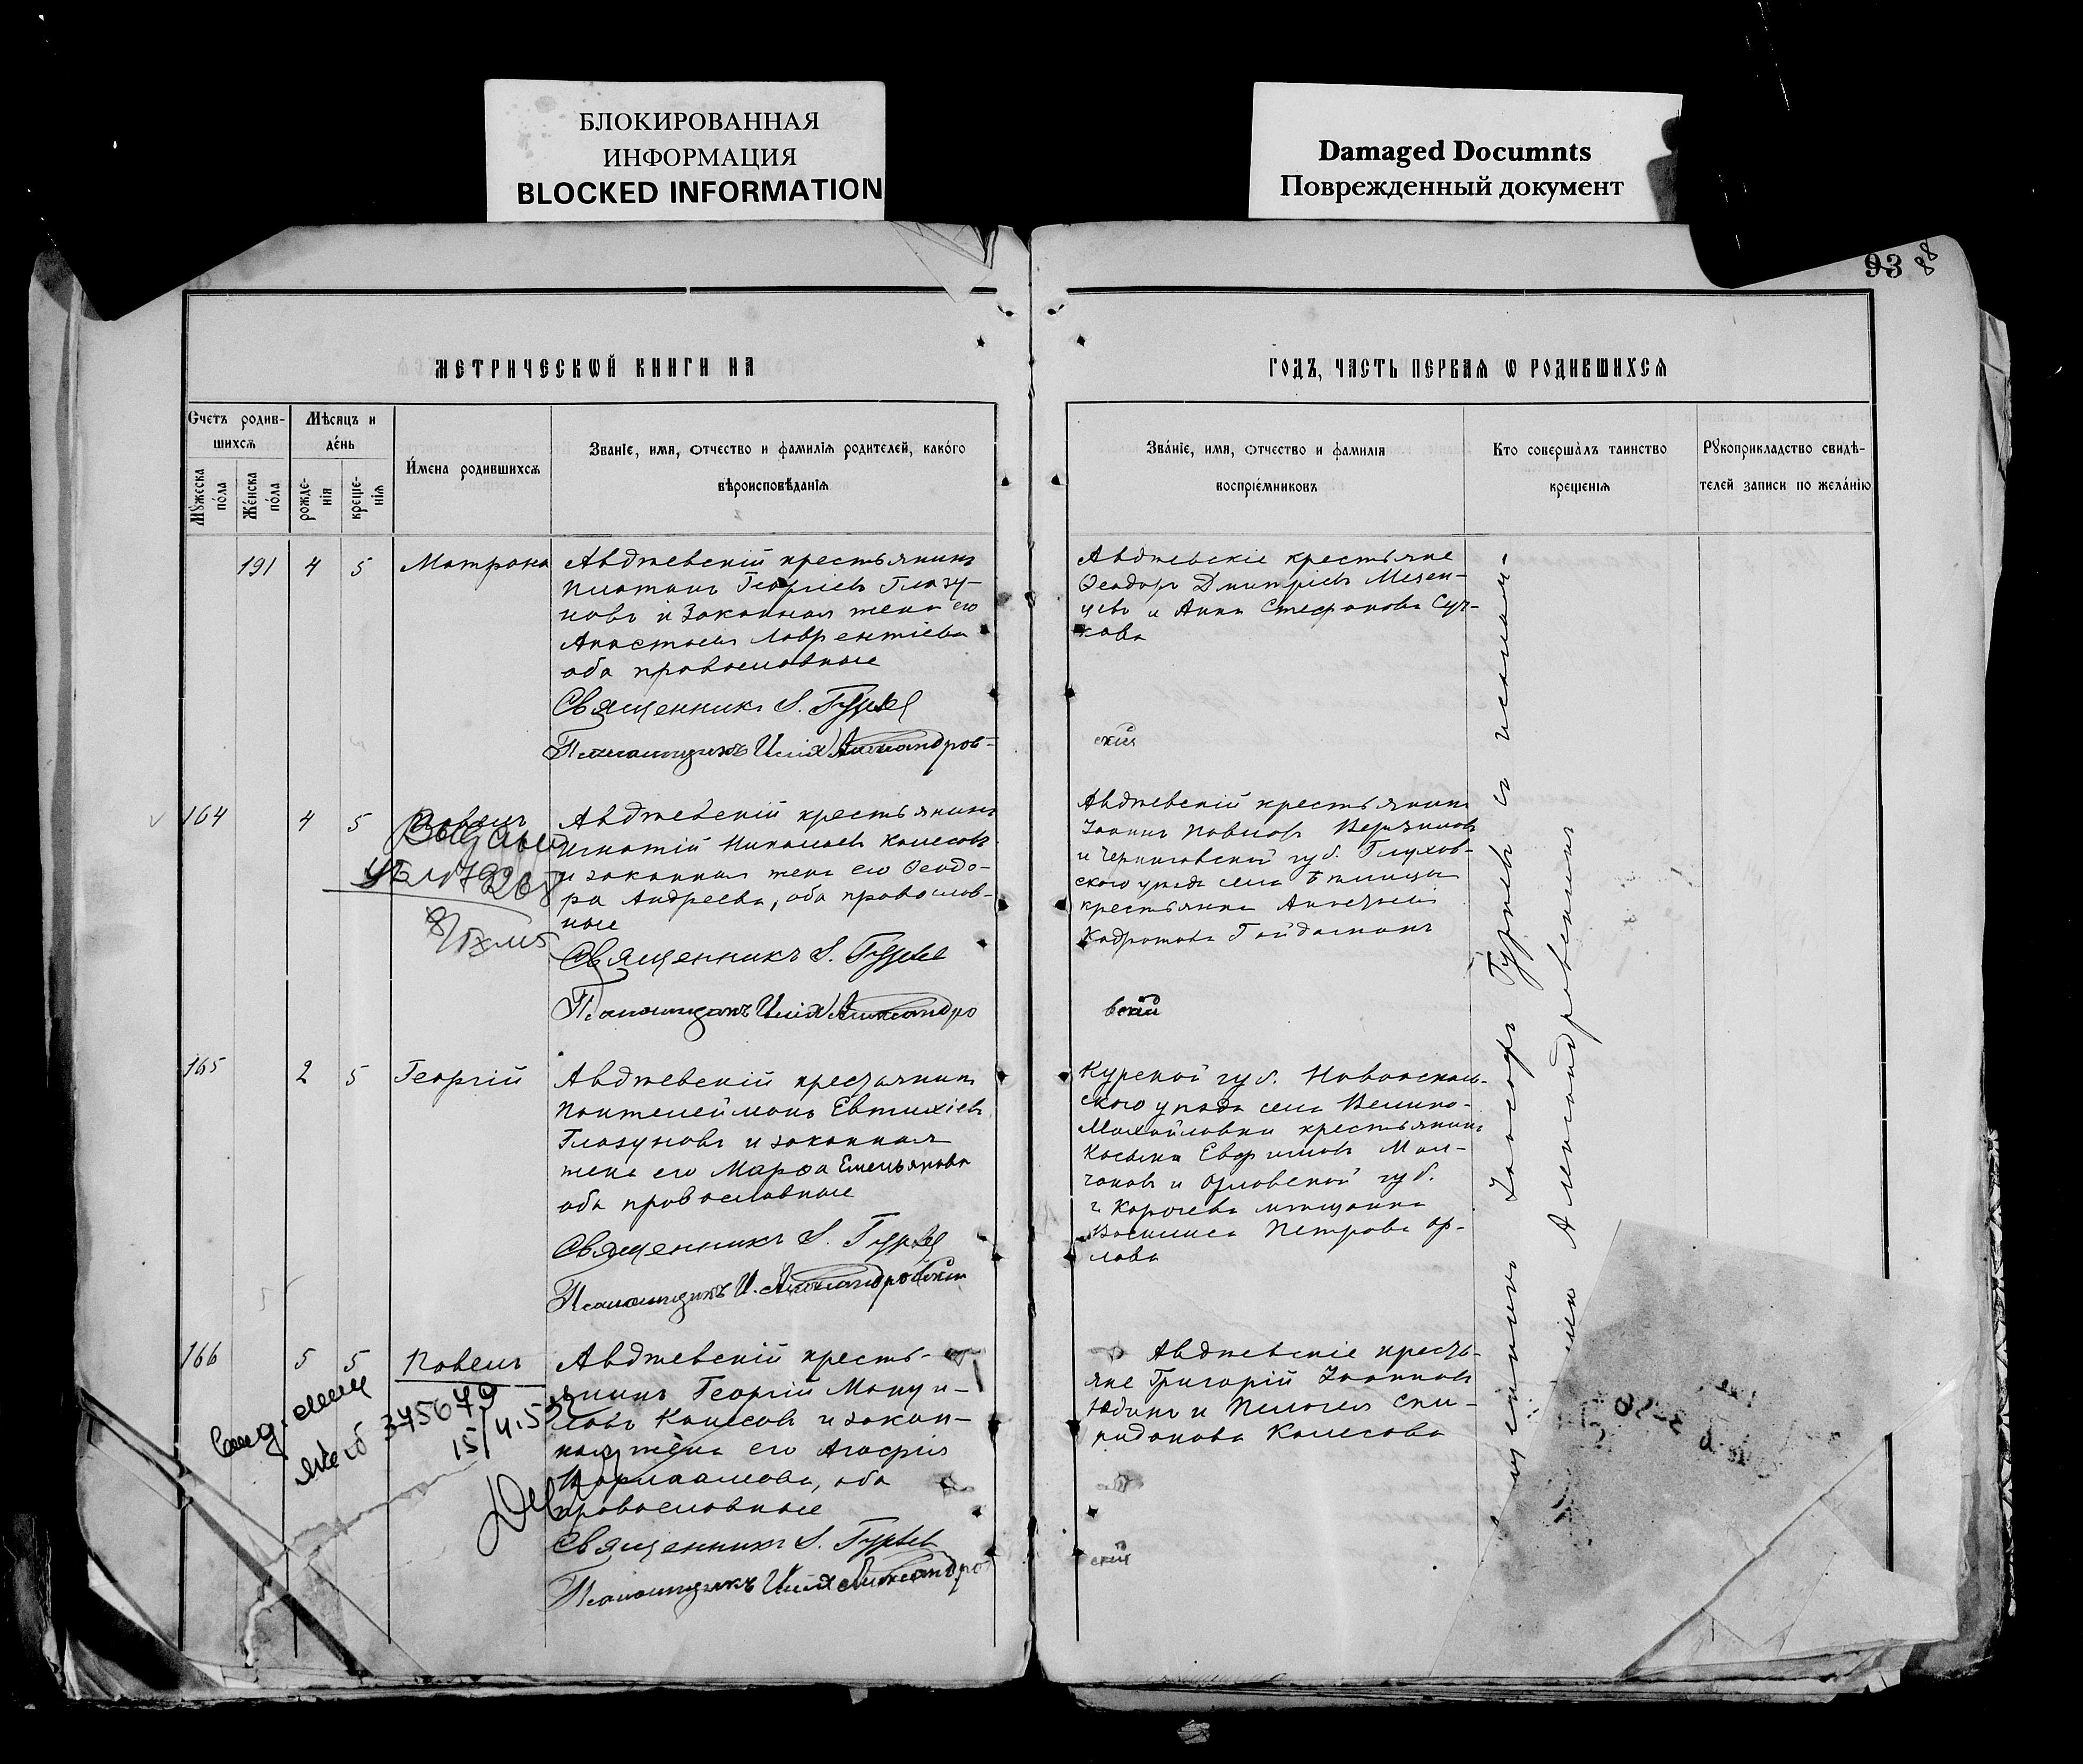 БЛОКИРОВАННАЯ
ИНФОРМАЦИЯ
BLOCKED INFORMATION
Damaged Documnts
Поврежденный документ
93
88
МЕТРИЧЕСКОЙ КНИГИ НА
ГОДЪ, ЧАСТЬ ПЕРВАЯ Ѡ РОДИВШИХСѦ
Счетъ родив-
шихсѧ
Мѣсяцъ и
де́нь
Мꙋжеска
по́ла
Же́нска
по́ла
рожде-
нія
креще-
нія
И́мена родившихсѧ
Званіе, имя, ѻтчество и фамиліѧ родителей, како́го
вѣроисповѣданіѧ
Зва́ніе, имя, ѻтчество и фамиліѧ
воспріе́мниковъ
Кто соверша̀лъ таинство
крещеніѧ
Рꙋкоприкладство свидѣ-
телей записи по жела́нію
191 4 5 Матрона
Авдѣевскій крестьянинъ
Платонъ Георгіевъ Глазу-
новъ и законная жена его
Анастасія Лаврентіева
оба православные
Священникъ І. Гурьев
Псаломщикъ Илія Александров-
Авдѣевскіе крестьяне
Ѳеодоръ Димитріевъ Мезен-
цевъ и Анна Стефанова Суч-
кова
скій
164 4 5 Павелъ
Авдѣевскій крестьянинъ
Игнатій Николаевъ Колесовъ
и законная жена его Ѳеодо-
ра Андреева, оба православ-
ные
Священникъ І. Гурьев
Псаломщикъ Илія Александро
Авдѣевскій крестьянинъ
Іоаннъ Павловъ
и Черниговской губ. Глухов-
ского уѣзда села
крестьянка
Кодратова Гайдамакъ
вскій
165 2 5 Георгій
Авдѣевскій крестьянинъ
Пантелеймонъ Евтихіевъ
Глазуновъ и законная
жена его Марѳа Емельянова
оба православные
Священникъ І. Гурьев
Псаломщикъ И. Александровскій
Курской губ. Новооскол-
ского уѣзда села Велико-
Михайловки крестьянинъ
Косьма Евфимовъ Мол-
чановъ и Орловской губ.
г. Карачева мѣщанка
Василиса Петрова Ор-
лова
166 5 5 Павелъ
375679
15/4.5
Авдѣевскій кресть-
янинъ Георгій Мануи-
ловъ Колесовъ и закон-
ная жена его Агафія
Варлаамова, оба
православные
Священникъ І. Гурьев
Псаломщикъ Илія Александро
Авдѣевскіе кресть-
яне Григорій Іоанновъ
Юдинъ и Пелагея Спи-
ридонова Колесова
скій
Іоаннъ Гурьевъ съ псалом-
Александровскимъ